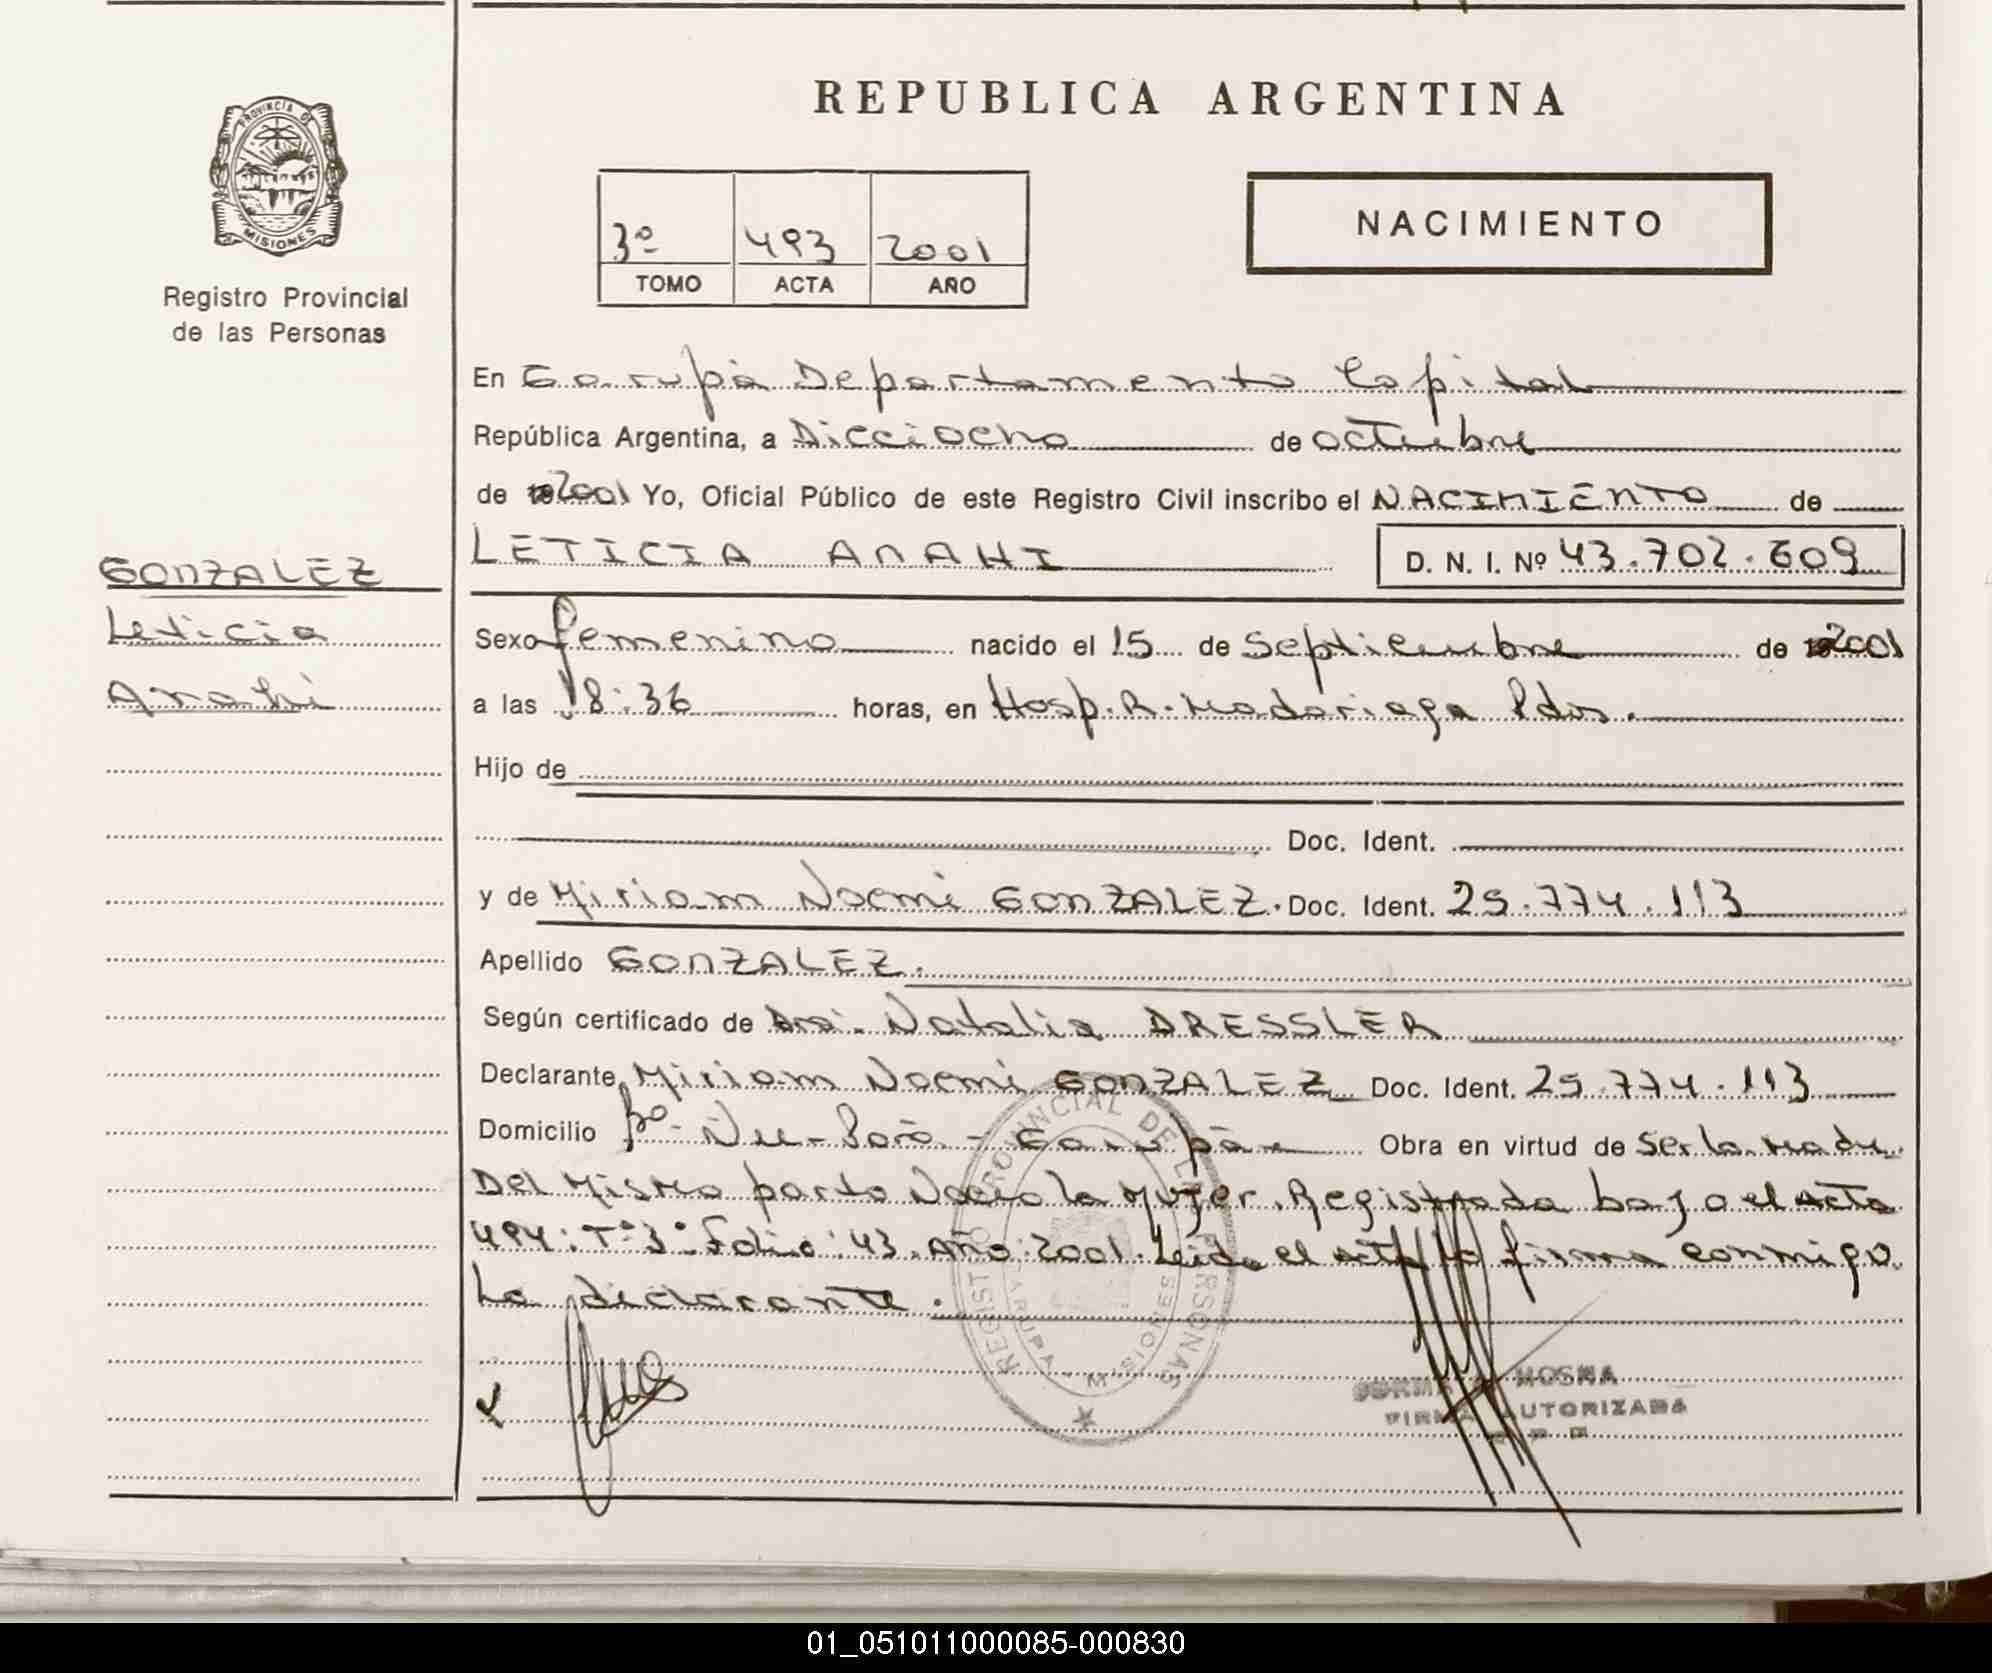 REPUBLICA ARGENTINA
PROVINCIA DE
MISIONES
Registro Provincial
de las Personas
3º 493 2001
TOMO ACTA AÑO
NACIMIENTO
En Garupá Departamento Capital
República Argentina, a Dieciocho de octubre
de 2001 Yo, Oficial Público de este Registro Civil inscribo el NACIMIENTO de
LETICIA ANAHI D. N. I. Nº 43.702.609
GONZALEZ
Leticia
Anahi
Sexo femenino nacido el 15 de Septiembre de 2001
a las 18:36 horas, en Hosp. R. Madariaga Pdas.
Hijo de
Doc. Ident.
y de Miriam Noemi GONZALEZ. Doc. Ident. 25.774.113
Apellido GONZALEZ.
Según certificado de Dra. Natalia DRESSLER
Declarante Miriam Noemi GONZALEZ Doc. Ident. 25.774.113
Domicilio Bº- Ñu-Porá - Garupá Obra en virtud de Ser la Madre.
Del Mismo parto Nacio la Mujer. Registrada bajo el Acta
494: Tº3º Folio: 43. Año: 2001. Leida el acta la firma conmigo.
La declarante.
REGISTRO PROVINCIAL DE LAS PERSONAS
GARUPA MISIONES
MOSNA
FIRMA AUTORIZADA
01_051011000085-000830